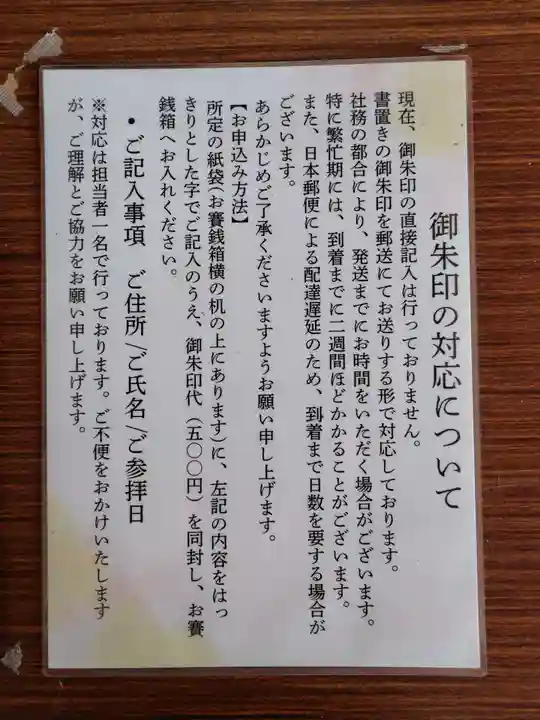 御朱印の対応について
現在、御朱印の直接記入は行っておりません。
書置きの御朱印を郵送にてお送りする形で対応しております。
社務の都合により、発送までにお時間をいただく場合がございます。
特に繁忙期には、到着までに二週間ほどかかることがございます。
また、日本郵便による配達遅延のため、到着まで日数を要する場合が
ございます。
あらかじめご了承くださいますようお願い申し上げます。
【お申込み方法】
所定の紙袋(お賽銭箱横の机の上にあります)に、左記の内容をはっ
きりとした字でご記入のうえ、御朱印代（五〇〇円）を同封し、お賽
銭箱へお入れください。
・ご記入事項　ご住所/ご氏名/ご参拝日
※対応は担当者一名で行っております。ご不便をおかけいたします
が、ご理解とご協力をお願い申し上げます。